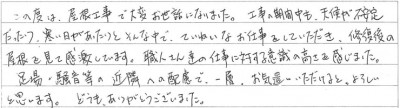 この度は、屋根工事で大変お世話になりました。工事の期間中も、天候が不安定
だったり、寒い日があったりとそんな中で、ていねいなお仕事をしていただき、修復後の
屋根を見て感激しています。職人さん達の仕事に対する意識の高さを感じました。
足場・騒音等の近隣への配慮で、一層、お気遣いいただけると、よろしい
と思います。どうもありがとうございました。